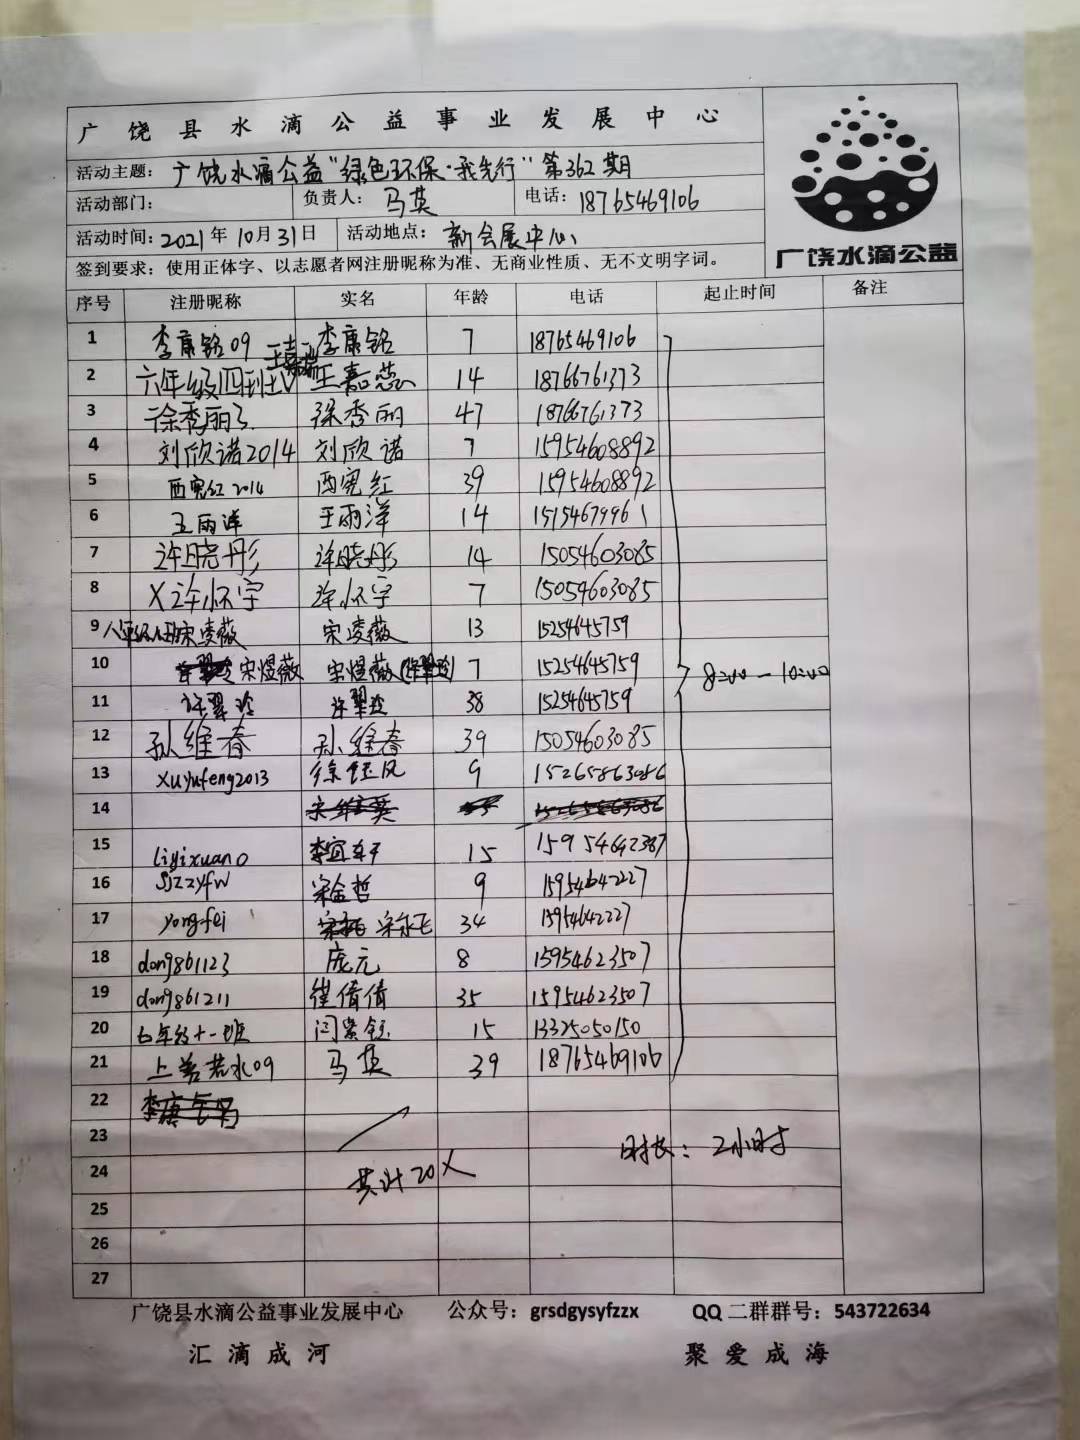 广饶县水滴公益事业发展中心
活动主题：广饶水滴公益“绿色环保·我先行”第362期
活动部门： 负责人：马英 电话：18765469106
活动时间：2021年10月31日 活动地点：新会展中心
广饶水滴公益
签到要求：使用正体字、以志愿者网注册昵称为准、无商业性质、无不文明字词。
序号 注册昵称 实名 年龄 电话 起止时间 备注
1 李康铭09 李康铭 7 18765469106
2 六年级四班 王嘉蕊 14 18766761373
3 徐秀丽 徐秀丽 47 18766761373
4 刘欣诺2014 刘欣诺 7 15954608892
5 西宪红2014 西宪红 39 15954608892
6 王雨洋 王雨洋 14 15154679961
7 许晓彤 许晓彤 14 15054603085
8 X许怀宇 许怀宇 7 15054603085
9 宋凌薇 宋凌薇 13 15254645759
10 宋煜薇 宋煜薇(许翠玲) 7 15254645759 8:00—10:00
11 许翠玲 许翠玲 38 15254645759
12 孙维春 孙维春 39 15054603085
13 xuyufeng2013 徐钰风 9 15265863086
14
15 liyixuan0 李宜轩 15 15954642387
16 sjzzyfw 宋金哲 9 15954642227
17 yongfei 宋永飞 34 15954642227
18 dong861123 庞元 8 15954623507
19 dong861211 崔倩倩 35 15954623507
20 七年级十一班 闫紫钰 15 13325050150
21 上善若水09 马英 39 18765469106
22
23 时长：2小时
24 共计20人
25
26
27
广饶县水滴公益事业发展中心 公众号：grsdgysyfzzx QQ二群群号：543722634
汇滴成河 聚爱成海